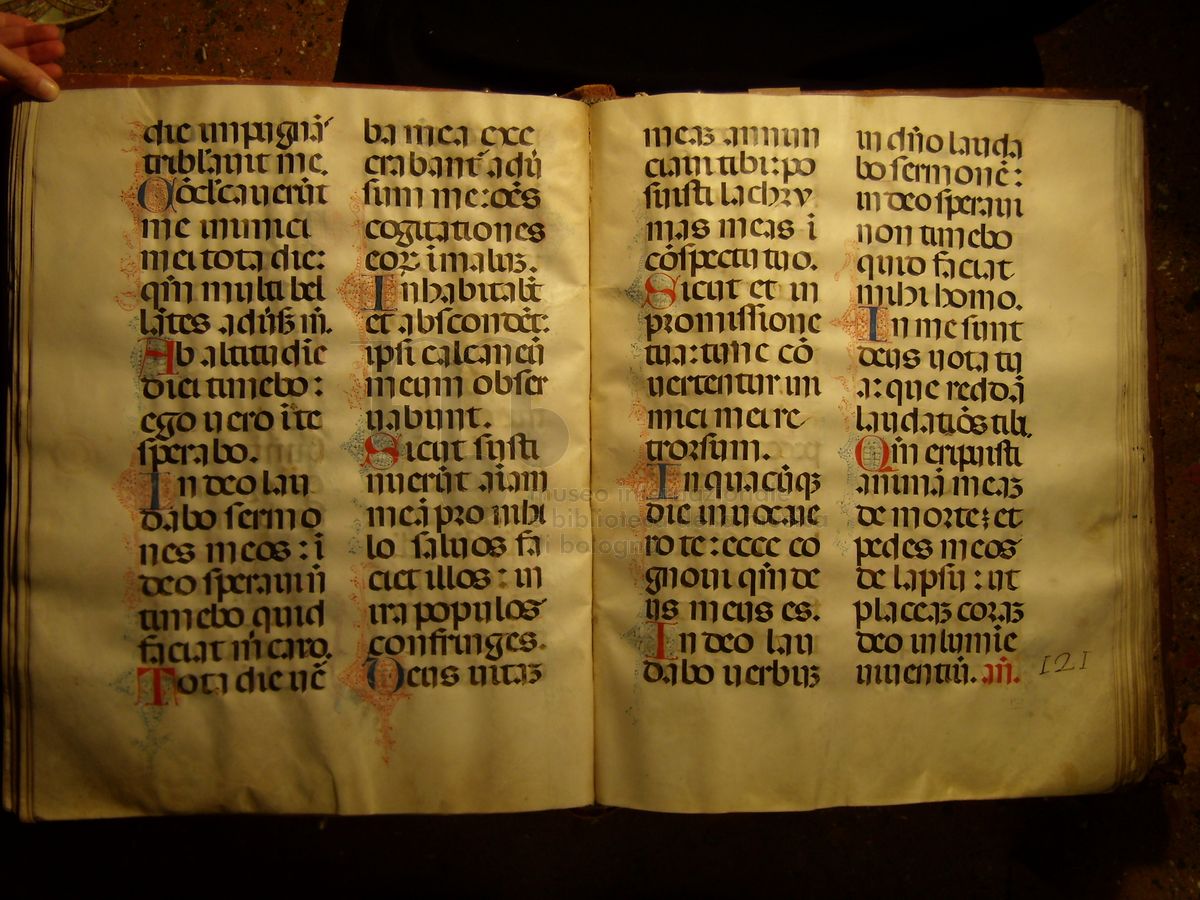 die impignā´
tribl'auit me.
Cōcl'cauerūt
me inimici
mei tota die:
qm̄ multi bel
lātes aduꝫ m̄.
Ab altitudie
diei timebo:
ego uero ī te
sperabo.
In deo lau
dabo sermo
nes meos: ī
deo speraui ñ
timebo quid
faciat m̄ caro.
Tota die ūē
ba mea exe
crabant᷑ adū
sum me: oēs
cogitationes
eoꝝ ī maluꝫ.
Inhabitabt̄
et abscondēt:
ipsi calcaneū
meum obser
uabunt.
Sicut susti
nuerūt aīam
meā pro nihi
lo saluos fa
ciet illos: in
ira populos
confringes.
Deus uitaꝫ
meaꝫ annun
ciaui tibi: po
suisti lachry
mas meas ī
cōspectu tuo.
Sicut et in
promissione
tua: tunc cō
uertentur ini
mici mei re
trorsum.
In quacūqꝫ
die inuocaue
ro te: ecce co
gnoui qm̄ de
us meus es.
In deo lau
dabo uerbuꝫ
in dño lauda
bo sermonē:
in deo speraui
non timebo
quid faciat
mihi homo.
In me sunt
deus uota tu
a: que reddā
laudatiōs tibi.
Qm̄ eripuisti
animā meaꝫ
de morte: et
pedes meos
de lapsu: ut
placeaꝫ coraꝫ
deo in lumīe
uiuentiū. añ.
121
museo internazionale
e biblioteca della musica
di bologna